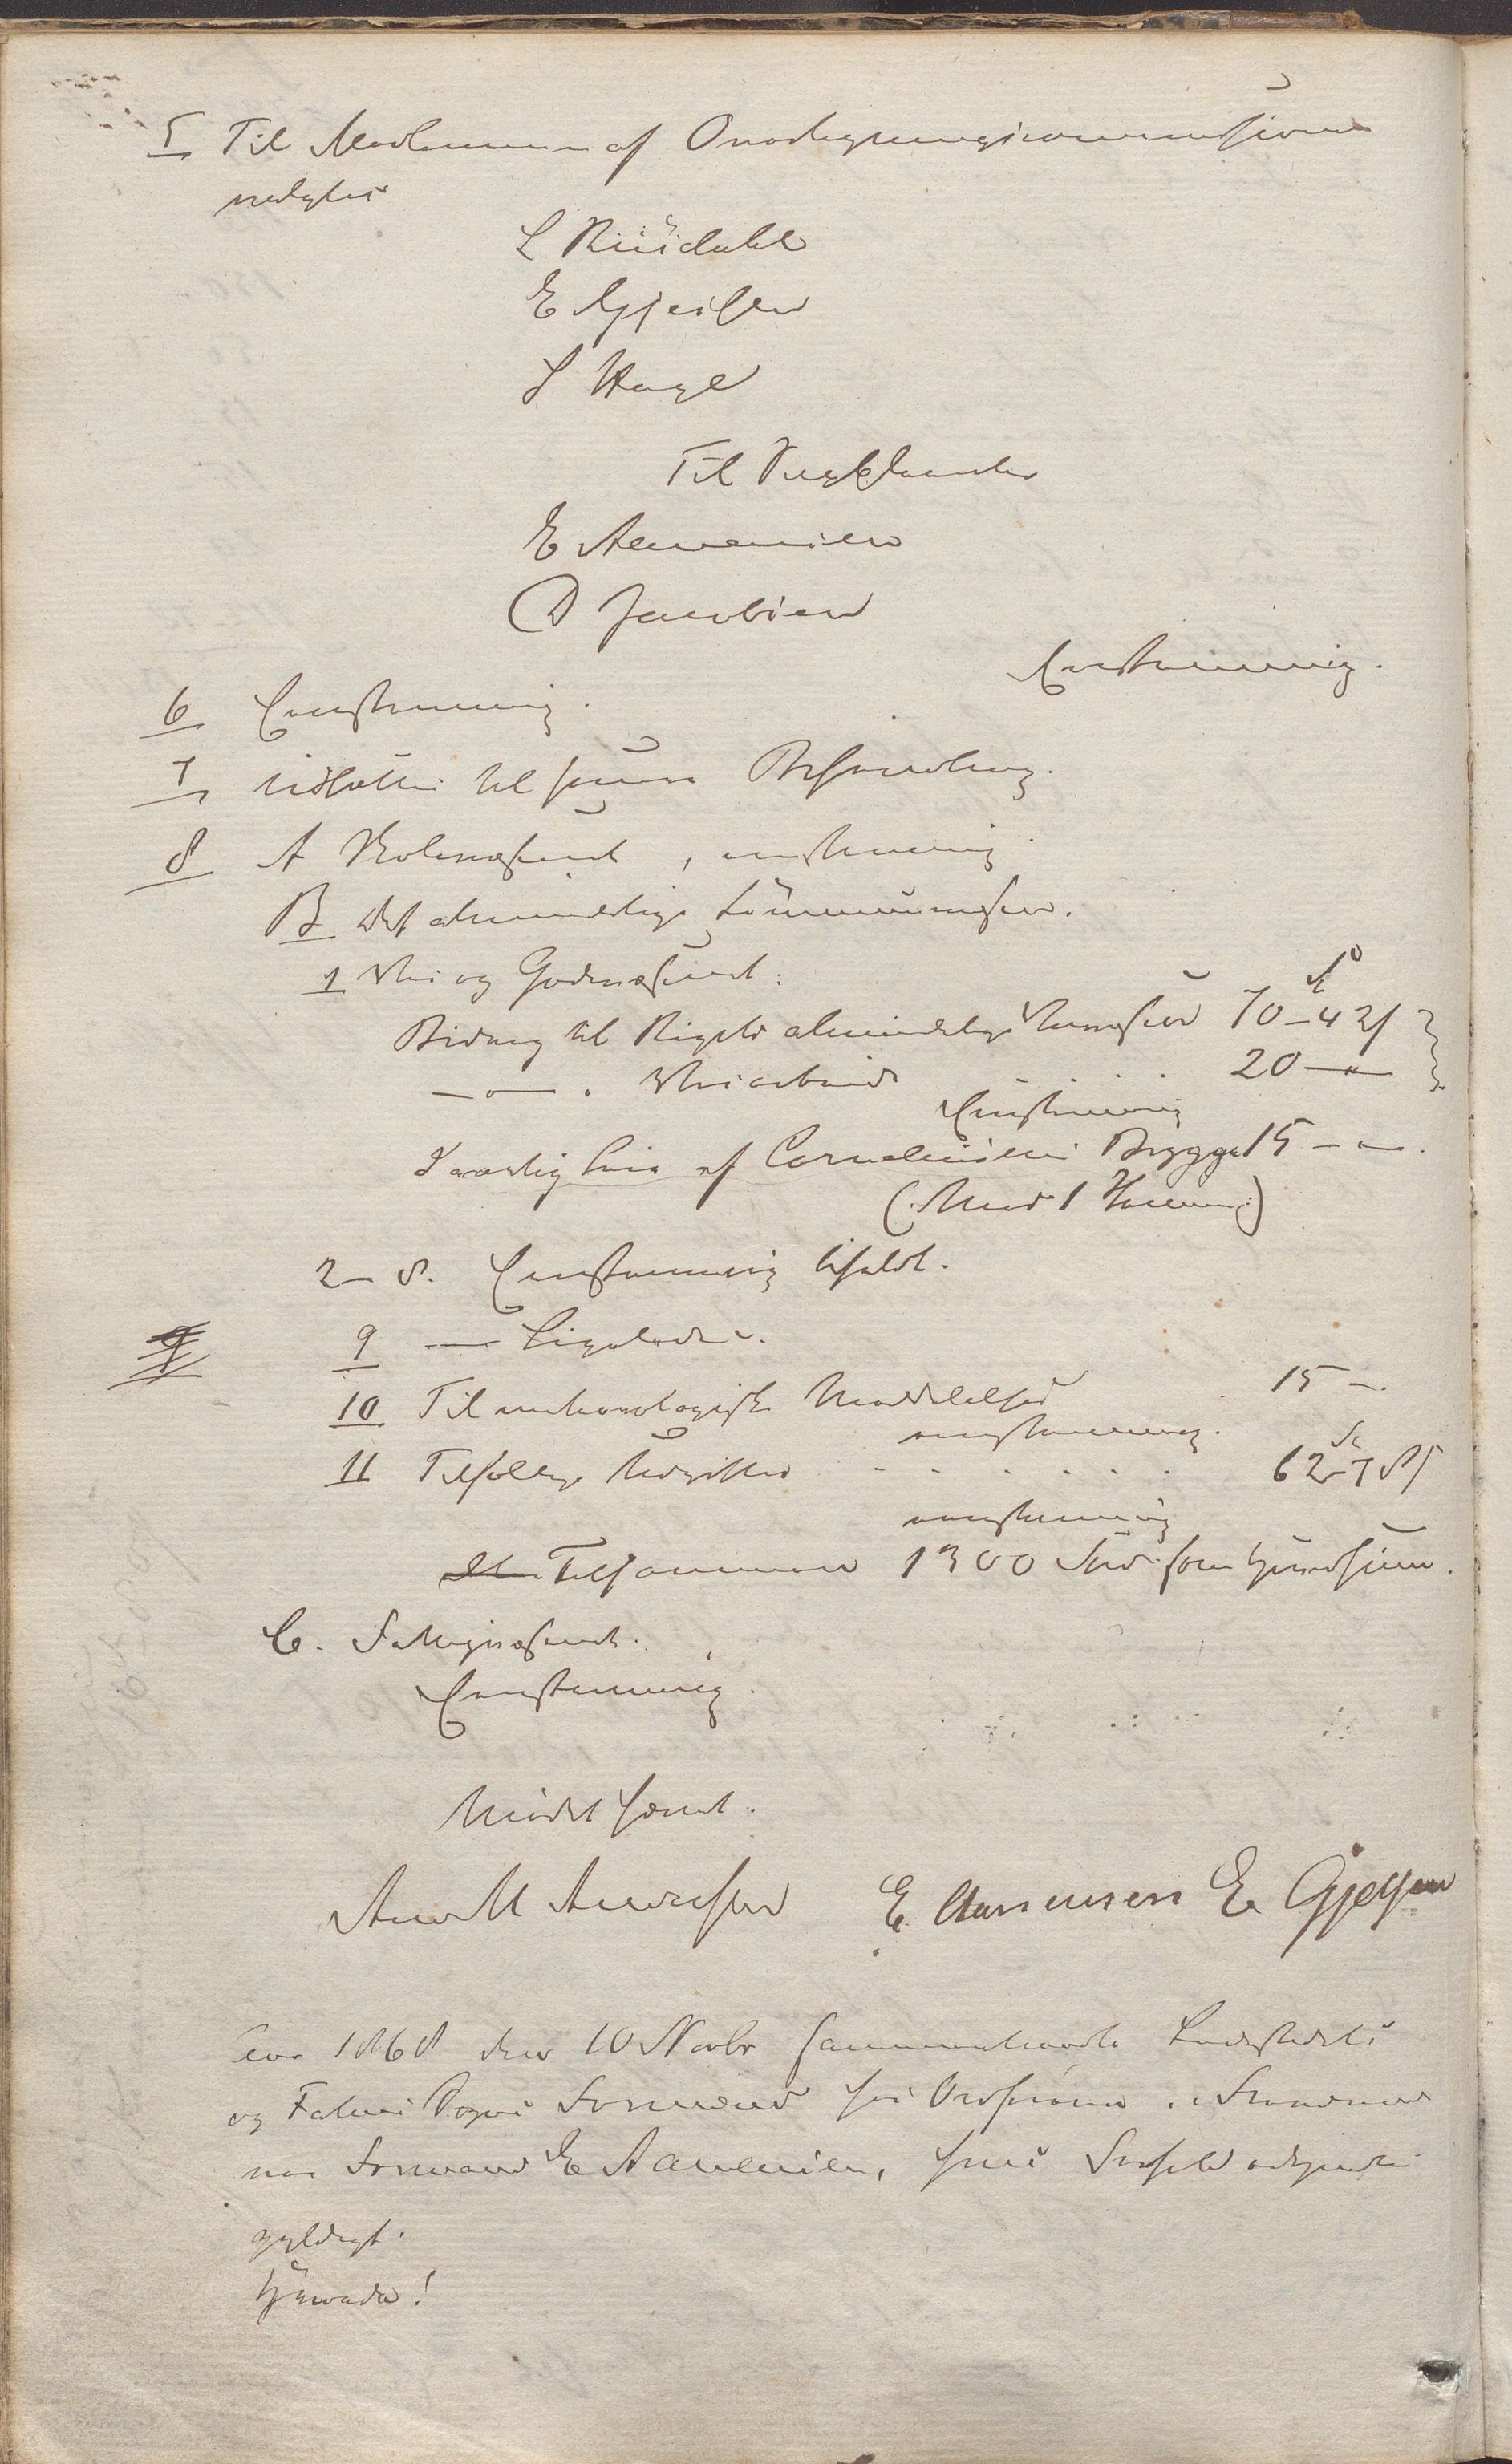 5 Til Medlemmer af Overligningscommissionen
valgtes
L Riisdahl
E Gjersen
S Hage
Til Suppleanter
E Asmensen
D Jacobsen
Eenstemmig.
6 Eenstemmig.
7 Udsættes til senere Behandling.
8 A Skolevæsenet, eenstemmig.
B Det almindelige Communevæsen.
1 Vei og Gadevæsenet:
Bidrag til Rigets almindelige Veivæsen 70 – 42 ß
—„— . Veiarbeide . . . . 20 —„—
Eenstemmig
Aarlig Leie af Cornelisens Brygge 15 —„—
(: Mod 1 Stemme :)
2 – 8. Eenstemmig bifaldt.
9 — Ligeledes.
10 Til meteorologiske Meddelelser 15 –.
eenstemmig.
11 Tilfældige Udgifter . . . . . . 62 – 78 ß
eenstemmig
Tilsammen 1300 Spd. som rund Sum.
C. Fattigvæsenet.
Eenstemmig.
Mødet hævet.
E Asmensen E Gjersen
Aar 1868 den 10 Novbr sammentraadte Ladestedets
og Formænd hos Ordføreren.
var Formand E Asmensen, hvis Forfald ansees
gyldigt.